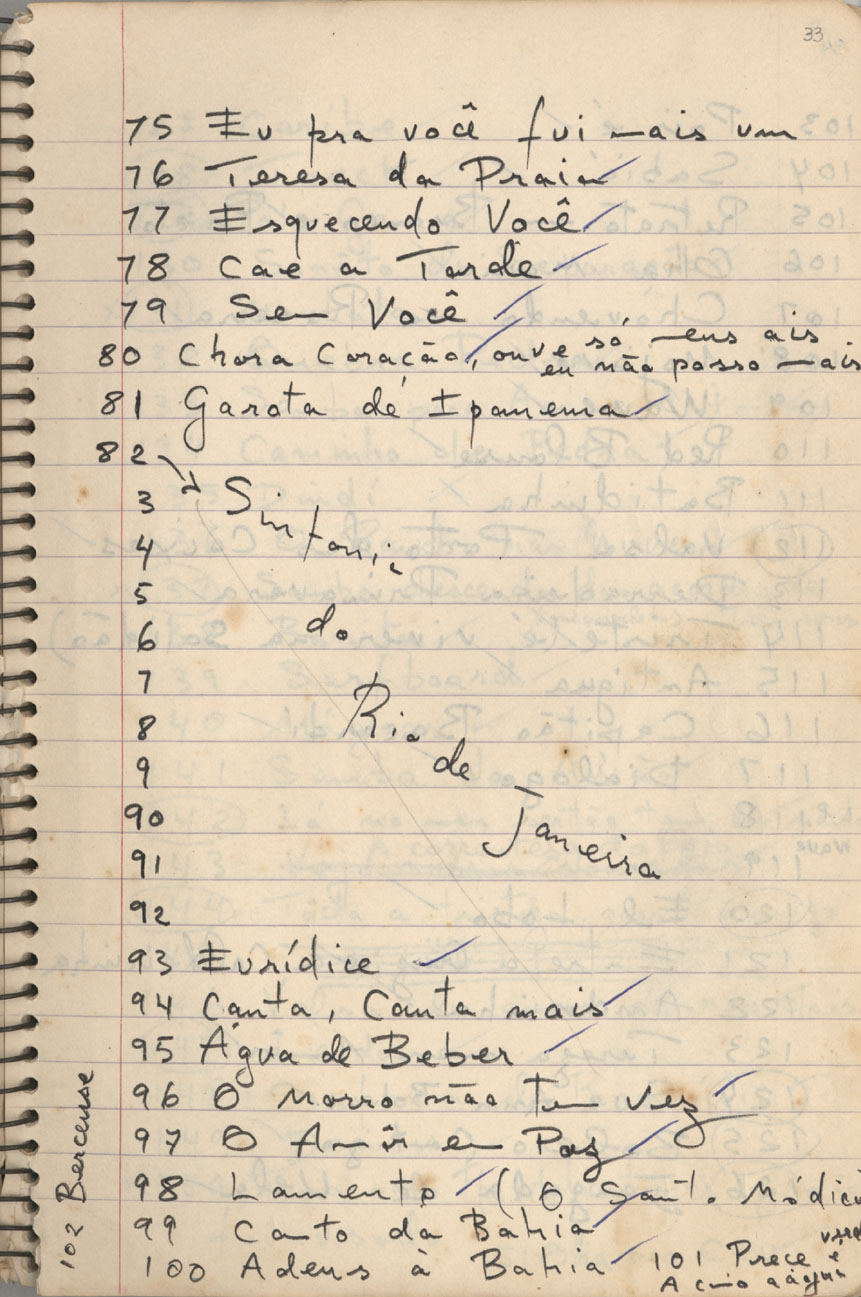 33
75 Eu pra você fui mais um
76 Teresa da Praia
77 Esquecendo Você
78 Cae a Tarde
79 Sem Você
80 Chora Coração, ouve só, meus ais
eu não posso mais
81 Garota de Ipanema
82
3 Sinfonia
4
5
6 do
7
8 Rio
9 de
90
91 Janeiro
92
93 Eurídice
94 Canta, Canta mais
95 Água de Beber
96 O Morro não tem vez
97 O Amôr em Paz
98 Lamento (O Sant. Módico
99 Canto da Bahia
100 Adeus à Bahia 101 Prece
102 Berceuse